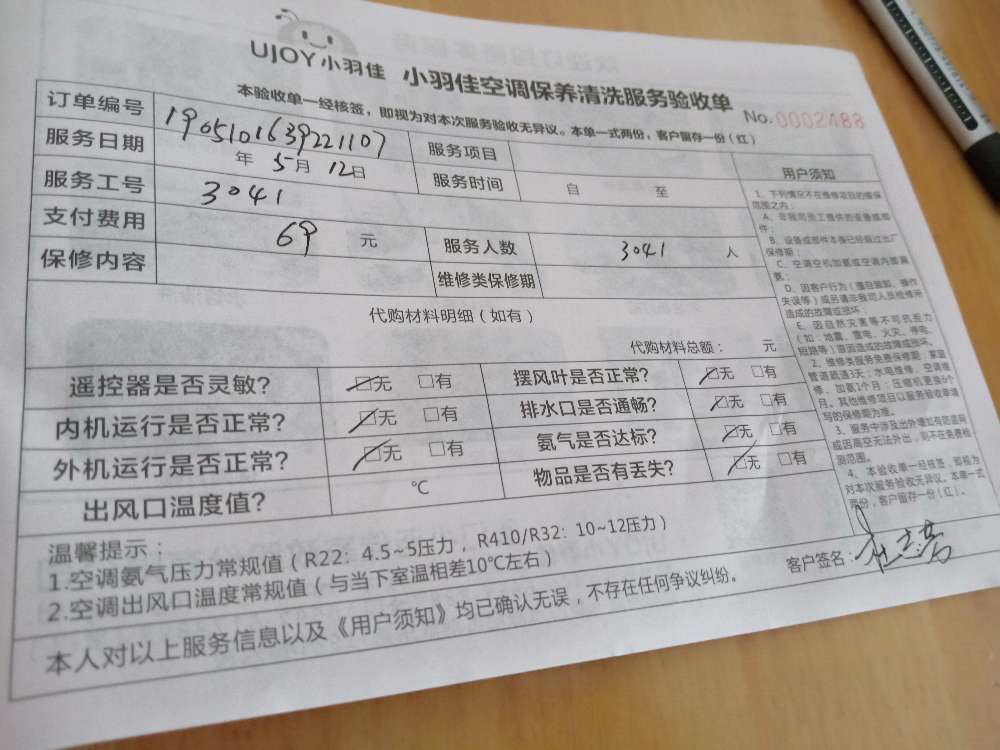 UJOY小羽佳 小羽佳空调保养清洗服务验收单
本验收单一经核签，即视为对本次服务验收无异议。本单一式两份，客户留存一份(红)
No.0002488
订单编号 190510163922110７ 服务项目
服务日期 年 5月 12日 服务时间 自 至
服务工号 3041
支付费用 69 元 服务人数 3041 人
保修内容 维修类保修期
代购材料明细（如有）
代购材料总额： 元
遥控器是否灵敏？ ☑无 □有 摆风叶是否正常？ ☑无 □有
内机运行是否正常？ ☑无 □有 排水口是否通畅？ ☑无 □有
外机运行是否正常？ ☑无 □有 氨气是否达标？ ☑无 □有
出风口温度值？ ℃ 物品是否有丢失？ ☑无 □有
用户须知
1、下列情况不在维修项目的维保
范围之内：
A、非我司员工提供的设备或部
件；
B、设备或部件本身已经超过出厂
保修期；
C、空调空机加氨或空调内部漏
氨；
D、因客户行为（擅自拆卸、操作
失误等）或另请非我司人员检修所
造成的故障或损坏；
E、因自然灾害等不可抗拒力
（如：地震、雷电、火灾、停电、
短路等）原因造成的故障或损坏。
2、维修类服务免费保修期：家庭
管道疏通3天；水电维修、空调维
修、加氨1个月；压缩机更换6个
月。其他维修项目以服务验收单填
写的保修期为准。
3、服务中涉及出外墙如有防盗网
或因高空无法外出，则不在免费检
测范围。
4、本验收单一经核签，即视为
对本次服务验收无异议。本单一式
两份，客户留存一份（红）。
温馨提示：
1.空调氨气压力常规值（R22：4.5~5压力，R410/R32：10~12压力）
2.空调出风口温度常规值（与当下室温相差10℃左右）
客户签名：
本人对以上服务信息以及《用户须知》均已确认无误，不存在任何争议纠纷。